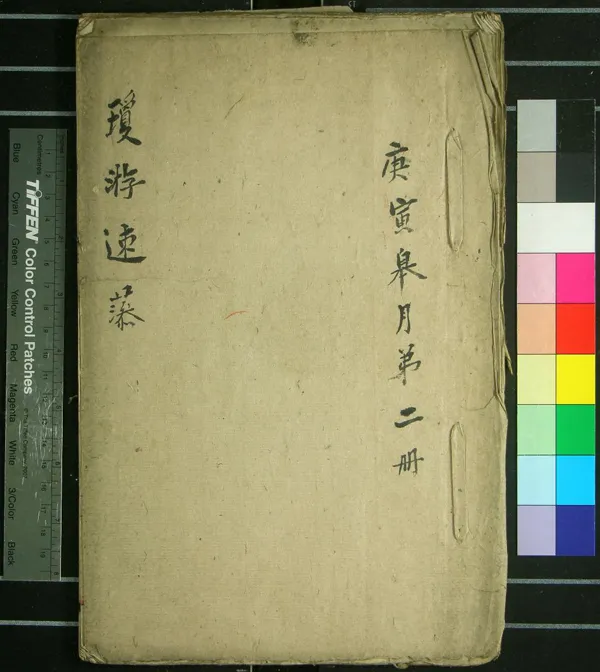 庚寅皋月第二册
瓊游速
Centimetres
TIFFEN Color Control Patches
Blue Cyan Green Yellow Red Magenta White 3/Color Black